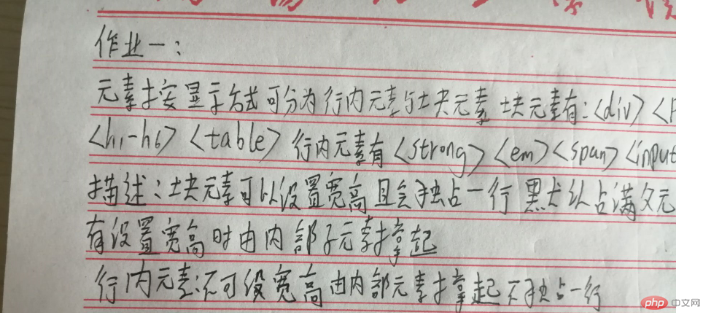 作业一:
元素按显示方式可分为行内元素与块元素 块元素有:<div> <P
<h1-h6> <table> 行内元素有 <strong> <em> <span> <input
描述:块元素可以设置宽高且会独占一行 默认占满父元
有设置宽高时由内部子元素撑起
行内元素:不可设宽高由内部元素撑起 不独占一行
php 中文网